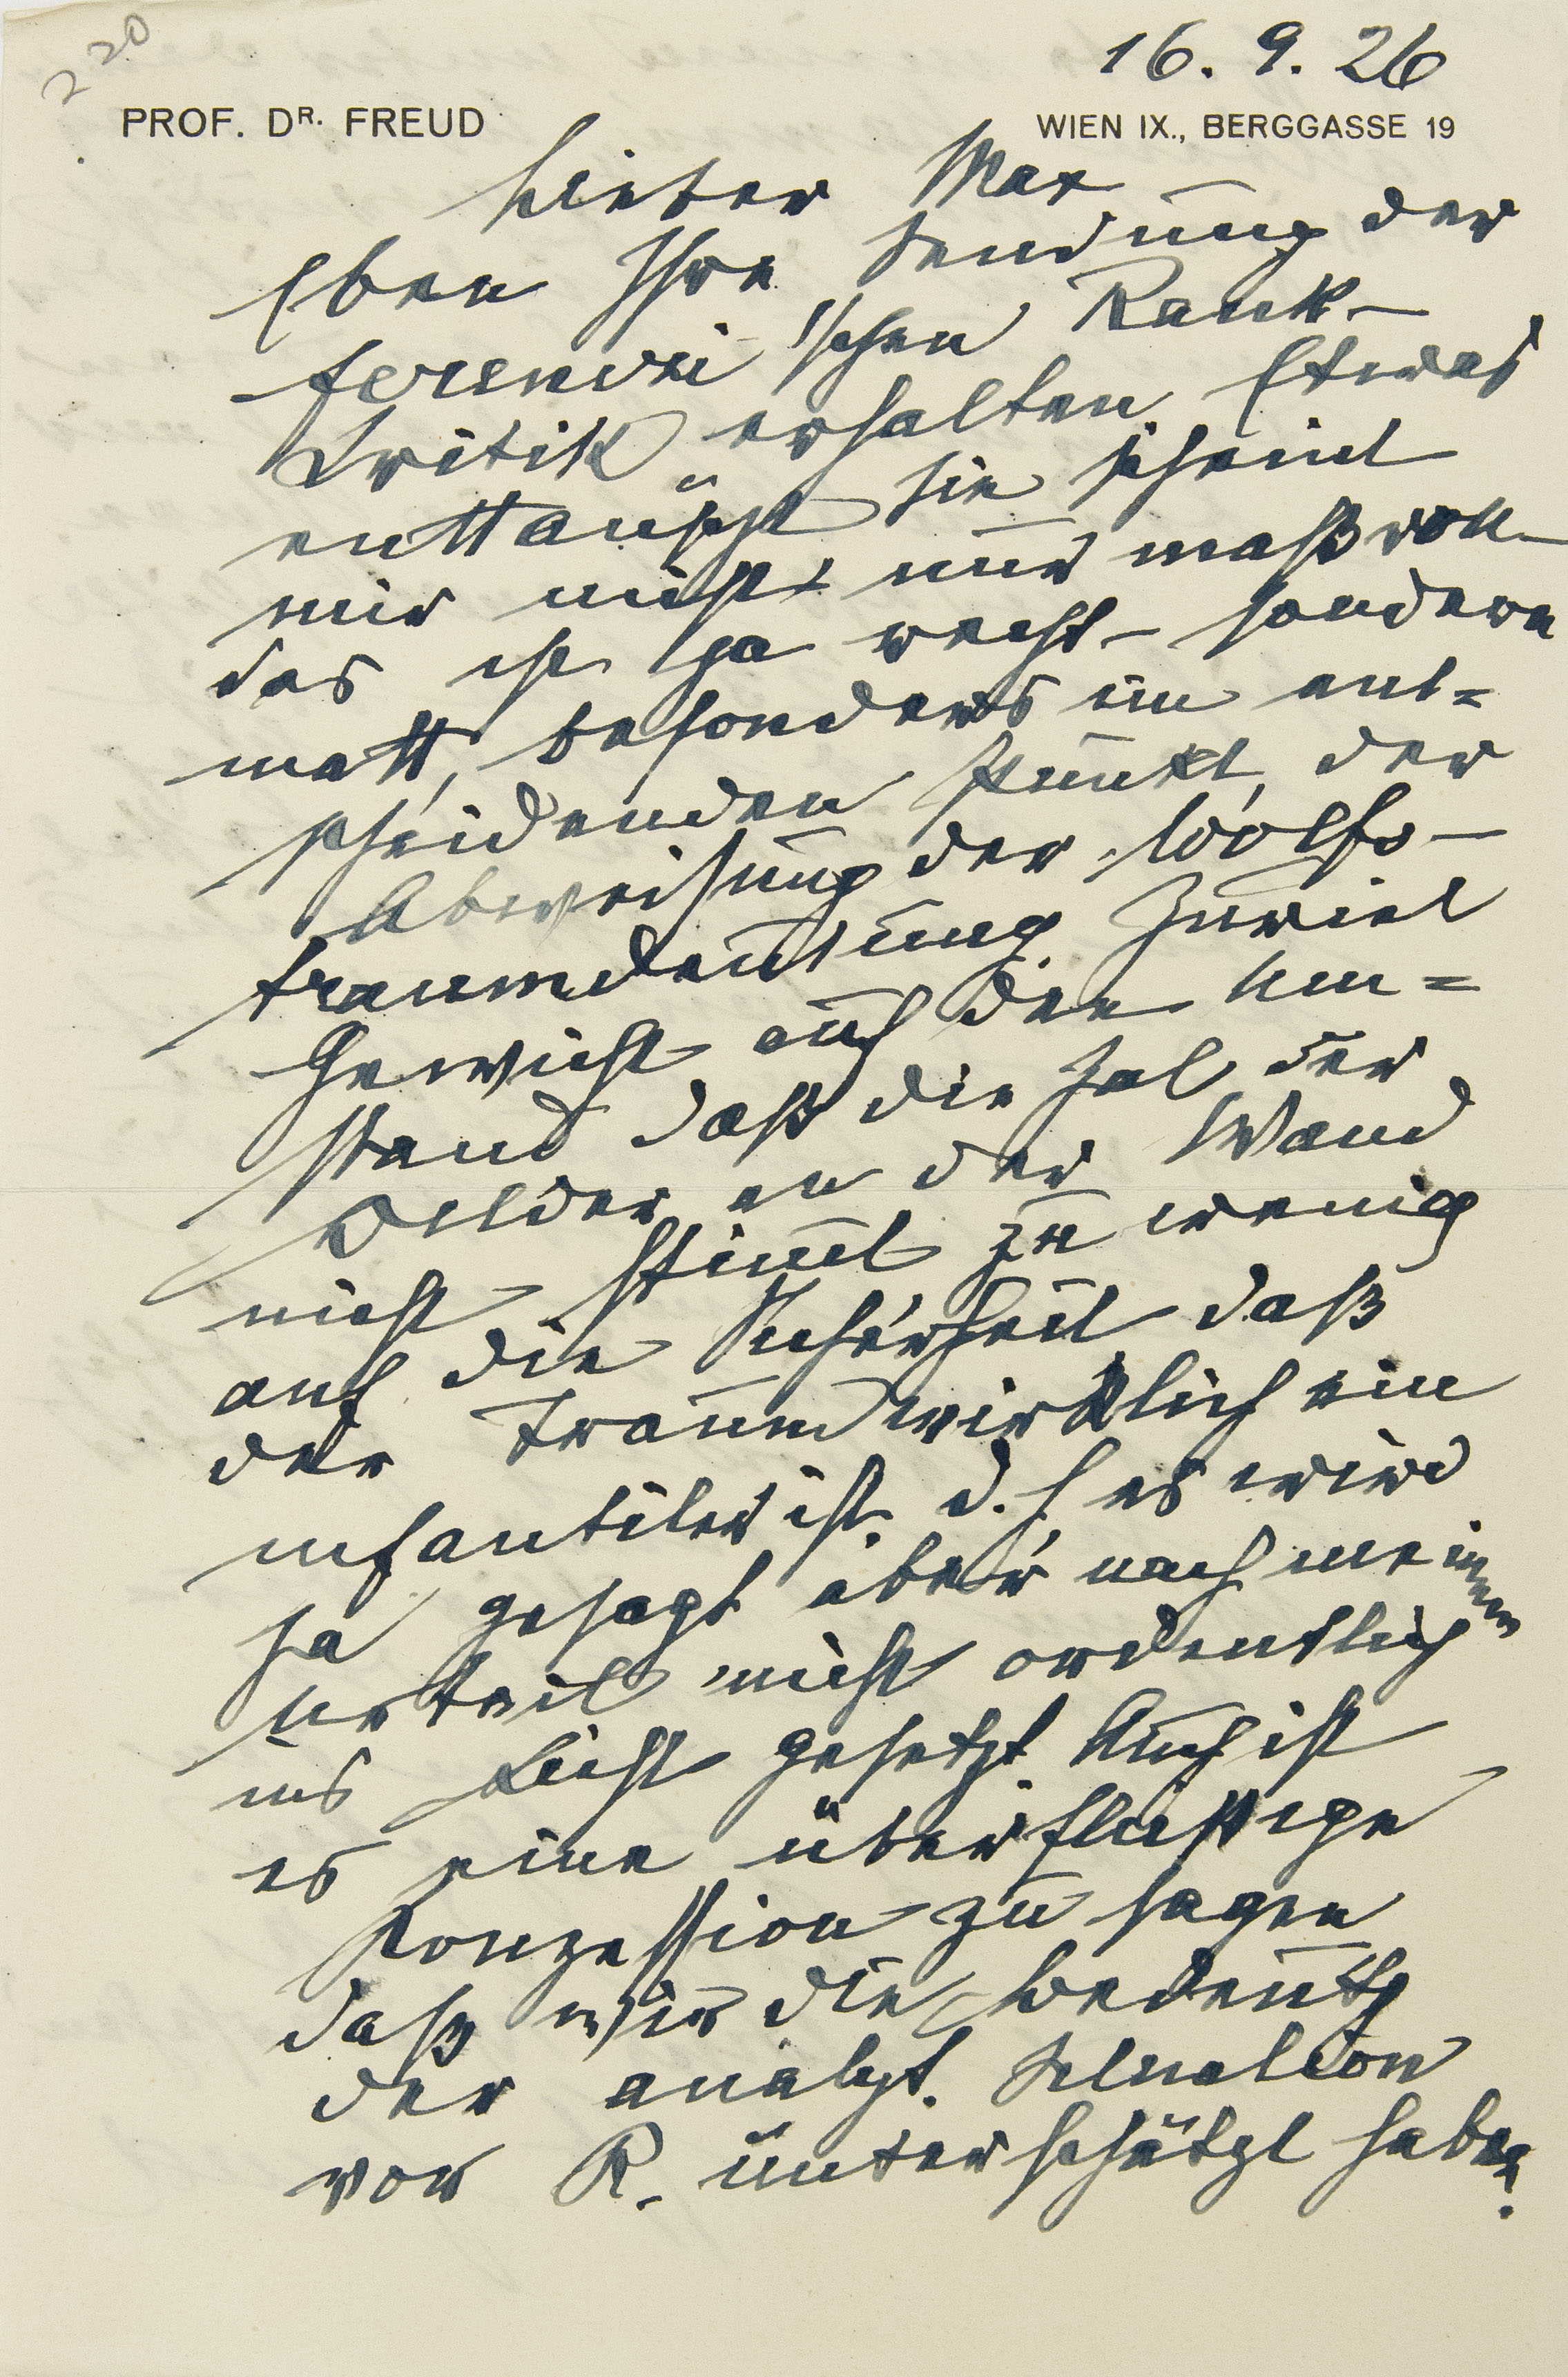 220
16. 9. 26
PROF. DR. FREUD
WIEN IX., BERGGASSE 19
Lieber Max
Eben Ihre Sendung der
Ferenczi'schen Rank-
Kritik erhalten. Etwas
enttäuscht. Sie scheint
mir nicht nur maßvoll –
das ist ja recht – sondern
matt, besonders im ent=
scheidenden Punkt, der
Abweisung der Wolfs-
traumdeutung. Zuviel
Gewicht auf den Um=
stand daß die Zal der
Bilder an der Wand
nicht stimmt zu wenig
auf die Sicherheit daß
der Traum wirklich ein
infantiler ist. d. h es wird
ja gesagt aber nach meinem
Urteil nicht ordentlich
ins Licht gesetzt. Auch ist
es eine überflüssige
Konzession zu sagen
daß wir die Bedeutg
der analyt. Situation
vor R. unterschätzt haben.